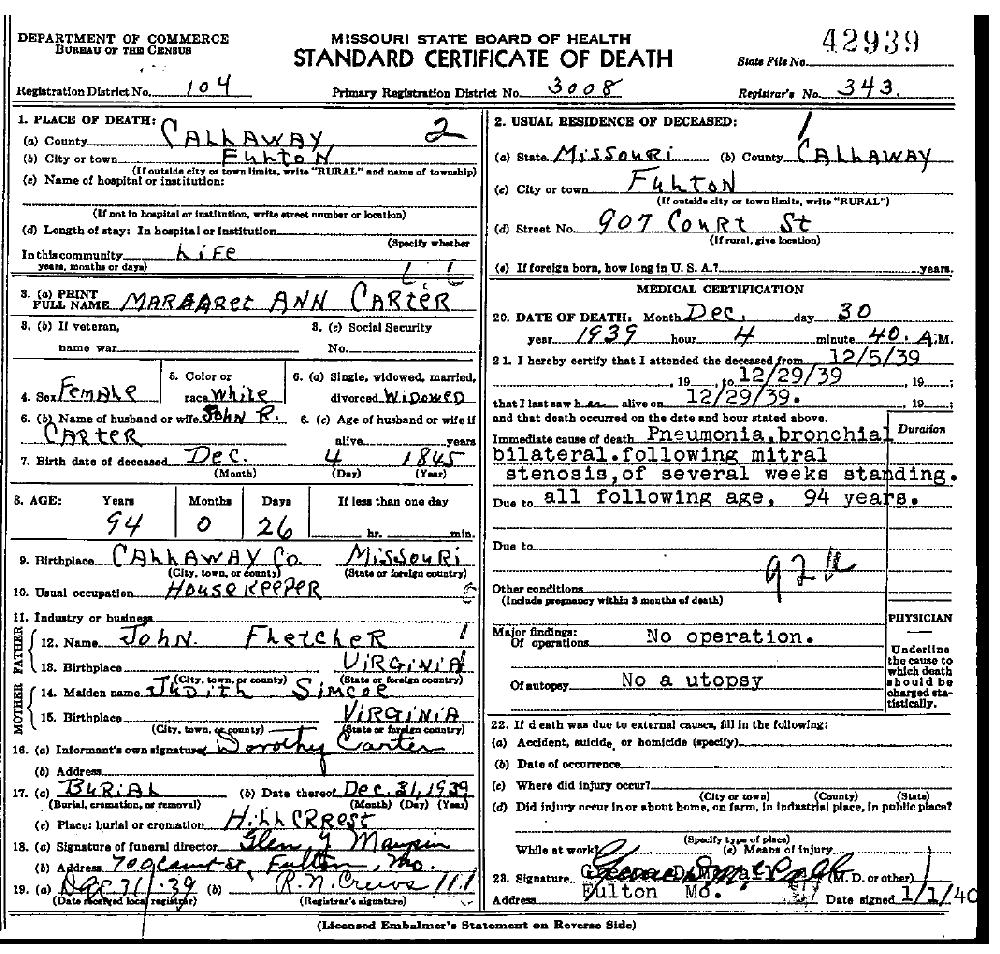 DEPARTMENT OF COMMERCE
BUREAU OF THE CENSUS
MISSOURI STATE BOARD OF HEALTH
STANDARD CERTIFICATE OF DEATH
42939
State File No.
Registration District No. 104
Primary Registration District No. 3008
Registrar's No. 343.
1. PLACE OF DEATH: 2
(a) County CALLAWAY
(b) City or town FULTON
(If outside city or town limits, write "RURAL" and name of township)
(c) Name of hospital or institution:
(If not in hospital or institution, write street number or location)
(d) Length of stay: In hospital or institution
(Specify whether
In this community LIFE
years, months or days)
3. (a) PRINT FULL NAME MARGARET ANN CARTER
3. (b) If veteran, name war
3. (c) Social Security No.
4. Sex Female
5. Color or race White
6. (a) Single, widowed, married, divorced WIDOWED
6. (b) Name of husband or wife JOHN R. CARTER
6. (c) Age of husband or wife if alive years
7. Birth date of deceased Dec. 4 1845
(Month) (Day) (Year)
8. AGE: Years Months Days If less than one day
94 0 26 hr. min.
9. Birthplace CALLAWAY Co. MISSOURI
(City, town, or county) (State or foreign country)
10. Usual occupation HOUSEKEEPER
11. Industry or business
FATHER
12. Name JOHN. FLETCHER
13. Birthplace VIRGINIA
(City, town, or county) (State or foreign country)
MOTHER
14. Maiden name JUDITH SIMCOE
15. Birthplace VIRGINIA
(City, town, or county) (State or foreign country)
16. (a) Informant's own signature Dorothy Carter
(b) Address
17. (a) BURIAL (b) Date thereof Dec. 31, 1939
(Burial, cremation, or removal) (Month) (Day) (Year)
(c) Place: burial or cremation HILLCRREST
18. (a) Signature of funeral director Glen Y Maupin
(b) Address 709 Court St, Fulton, Mo.
19. (a) Dec 31-39 (b) R. N. Crews
(Date received local registrar) (Registrar's signature)
2. USUAL RESIDENCE OF DECEASED: 1
(a) State MISSOURI (b) County CALLAWAY
(c) City or town FULTON
(If outside city or town limits, write "RURAL")
(d) Street No. 907 COURT St
(If rural, give location)
(e) If foreign born, how long in U. S. A.? years.
MEDICAL CERTIFICATION
20. DATE OF DEATH: Month Dec. day 30
year 1939 hour 4 minute 40. A.M.
21. I hereby certify that I attended the deceased from 12/5/39
, 19 , to 12/29/39 , 19 ;
that I last saw h alive on 12/29/39. , 19 ;
and that death occurred on the date and hour stated above.
Duration
Immediate cause of death Pneumonia,bronchial
bilateral.following mitral
stenosis,of several weeks standing.
Due to all following age, 94 years.
Due to
Other conditions
(Include pregnancy within 3 months of death)
Major findings:
Of operations No operation.
Of autopsy No a utopsy
PHYSICIAN
Underline the cause to which death should be charged statistically.
22. If death was due to external causes, fill in the following:
(a) Accident, suicide, or homicide (specify)
(b) Date of occurrence
(c) Where did injury occur?
(City or town) (County) (State)
(d) Did injury occur in or about home, on farm, in industrial place, in public place?
(Specify type of place)
While at work? (e) Means of injury
23. Signature (M. D. or other)
Address Fulton Mo. Date signed 1/1/40
(Licensed Embalmer's Statement on Reverse Side)